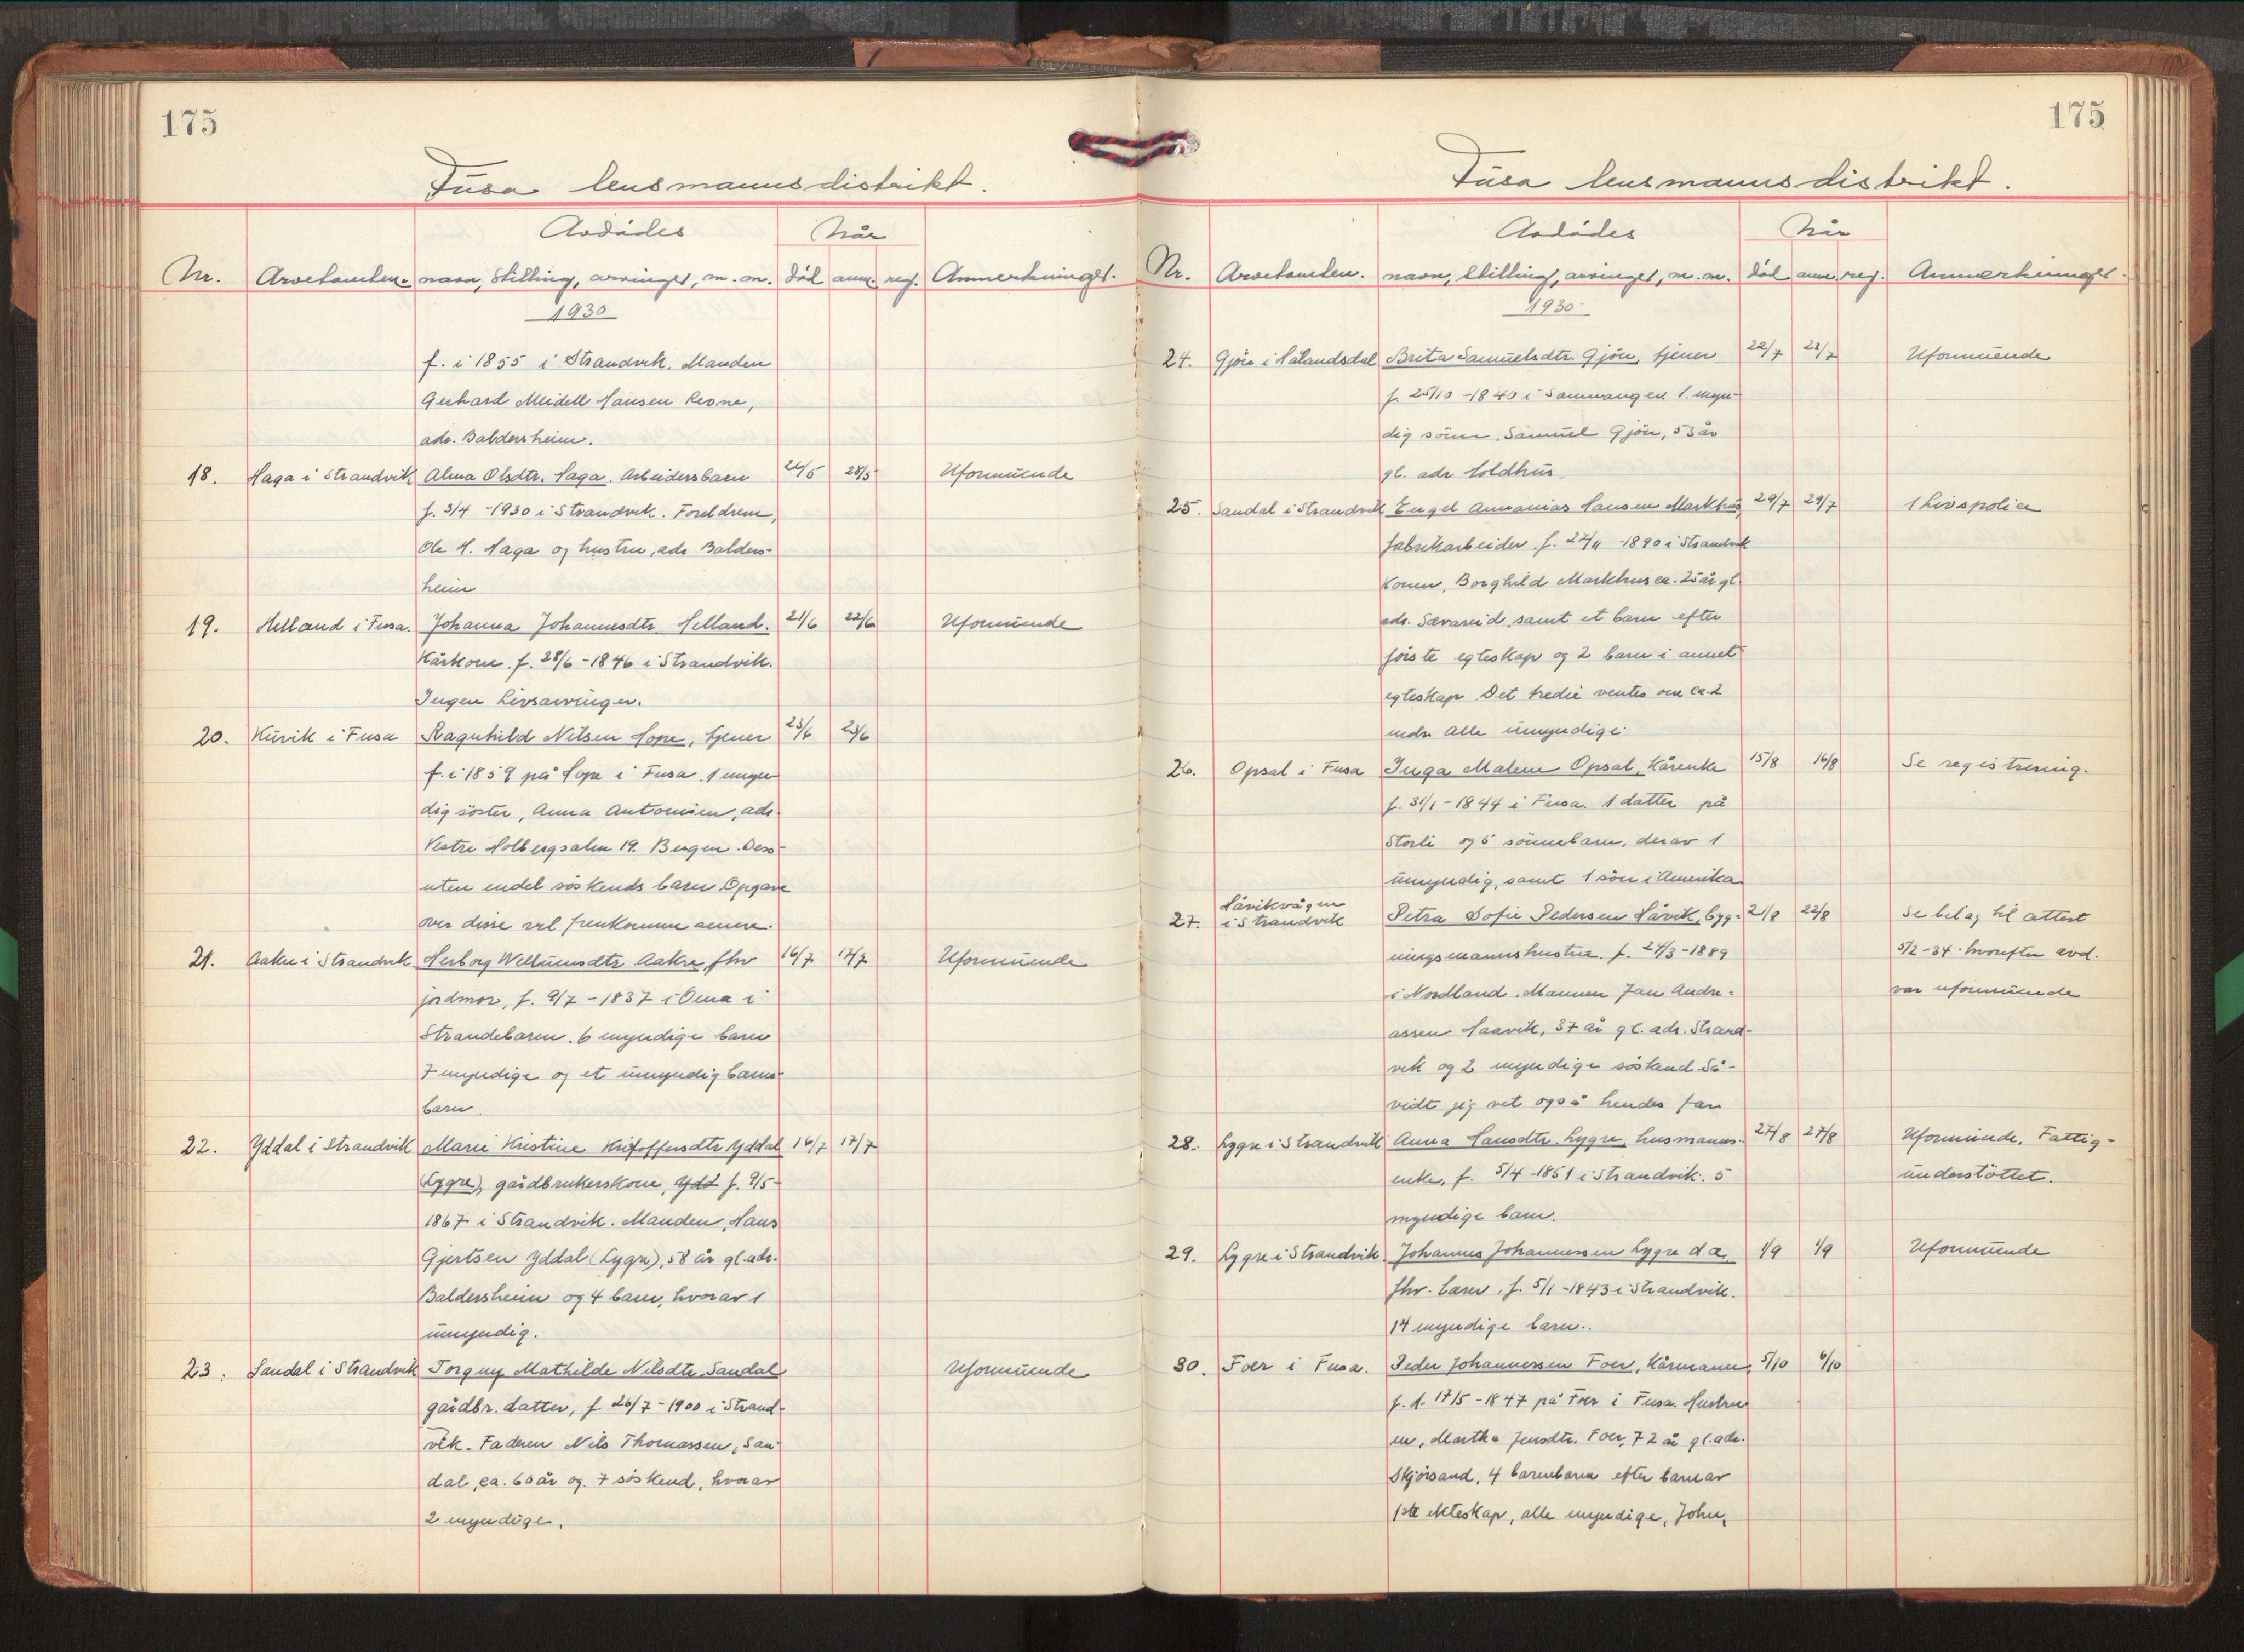 175
Fusa lensmannsdistrikt.
Avdødes
Når
Nr. Arvetomten. navn, Stilling, arvinger, m. m. død anm. reg. Anmerkninger.
1930
f. i 1855 i Strandvik. Manden
Gerhard Meidell Hansen Revne,
adr. Baldersheim.
18. Haga i Strandvik Alma Olsdtr. Haga. Arbeidersbarn 24/5 28/5 Uformuende
f. 3/4 - 1930 i Strandvik. Foreldrene,
Ole H. Haga og hustru, adr Balders-
heim
19. Helland i Fusa. Johanna Johannesdtr. Helland. 21/6 22/6 Uformuende
Kårkone. f. 28/6 - 1846 i Strandvik.
Ingen Livsarvinger.
20. Kuvik i Fusa Ragnhild Nilsen Hope, tjener 23/6 23/6
f. i 1859 på Hope i Fusa. 1 myn-
dig søster, Anna Antonisen, adr.
Vestre Holbergsalm 19. Bergen. Dess-
uten endel søskends barn Opgave
over disse vil fremkomme senere.
21. Aakre i Strandvik Herborg Wellumsdtr Aakre fhv 16/7 17/7 Uformuende
jordmor, f. 9/7 - 1837 i Oma i
Strandebarm. 6 myndige barn
7 myndige og et umyndig barne-
barn.
22. Yddal i Strandvik Marie Kristine Kristoffersdtr Yddal 16/7 17/7
(Lygre), gårdbrukerskone, Ydd f. 9/5 -
1867 i Strandvik. Manden, Hans
Gjertsen Yddal (Lygre), 58 år gl. adr.
Baldersheim og 4 barn, hvorav 1
umyndig.
23. Sandal i Strandvik Torguny Mathilde Nilsdtr. Sandal Uformuende
gårdbr. datter, f 26/7 - 1900 i Strand-
vik. Faderen Nils Thomassen, San-
dal, ca. 60 år og 7 søskend, hvorav
2 myndige.
175
Fusa lensmannsdistrikt.
Avdødes
Når
Nr. Arvetomten. navn, Stilling, arvinger, m. m. død anm. reg. Anmerkninger.
1930
24. Gjøn i Hålandsdal Brita Samuelsdtr. Gjøn, tjener 22/7 23/7 Uformuende
f. 25/10 - 1840 i Samnanger 1. myn-
dig sønn. Samuel Gjøn, 53 år
gl. adr Holdhus
25. Sandal i Strandvik Engel Annanias Hansen Markhus, 29/7 29/7 1 Livspolice
fabrikarbeider. f. 27/11 - 1890 i Strandvik
Konen, Borghild Markhus ca. 25 år gl.
adr. Sævareid, samt et barn efter
første egteskap og 2 barn i annet
egteskap. Det tredie ventes om ca. 2
mdr Alle umyndige
26. Opsal i Fusa Inga Malene Opsal, Kårenke 15/8 16/8 Se registrering.
f. 31/1 - 1844 i Fusa. 1 datter på
Storli og 5 sønnebarn, derav 1
umyndig, samt 1 søn i Amerika
Håvikvågen
27. i Strandvik Petra Sofie Pedersen Håvik, byg- 21/8 22/8 Se bilag til attest
ningsmannshustru. f. 24/3 - 1889 5/2 - 34. hvorefter avd.
i Nordland. Mannen Jan Andre- var uformuende
assen Haavik, 37 år gl. adr. Strand-
vik og 2 myndige søskend. Så-
vidt jeg vet også hendes far
28. Lygre i Strandvik Anna Hansdtr. Lygre, husmanns- 27/8 27/8 Uformuende, Fattig-
enke, f. 5/4 - 1851 i Strandvik. 5 understøttet.
myndige barn.
29. Lygre i Strandvik. Johannes Johannessen Lygre d æ. 1/9 1/9 Uformuende
fhv. lærer, f. 5/1 - 1843 i Strandvik.
14 myndige barn.
30. Foer i Fusa. Peder Johannessen Foer, Kårmann, 5/10 6/10
f. d. 17/5 - 1847 på Foer i Fusa. Hustru
en, Martha Jensdtr. Foer, 72 år gl. adr.
Skjørsand, 4 barnebarn efter barn av
1ste ekteskap, alle myndige, John,